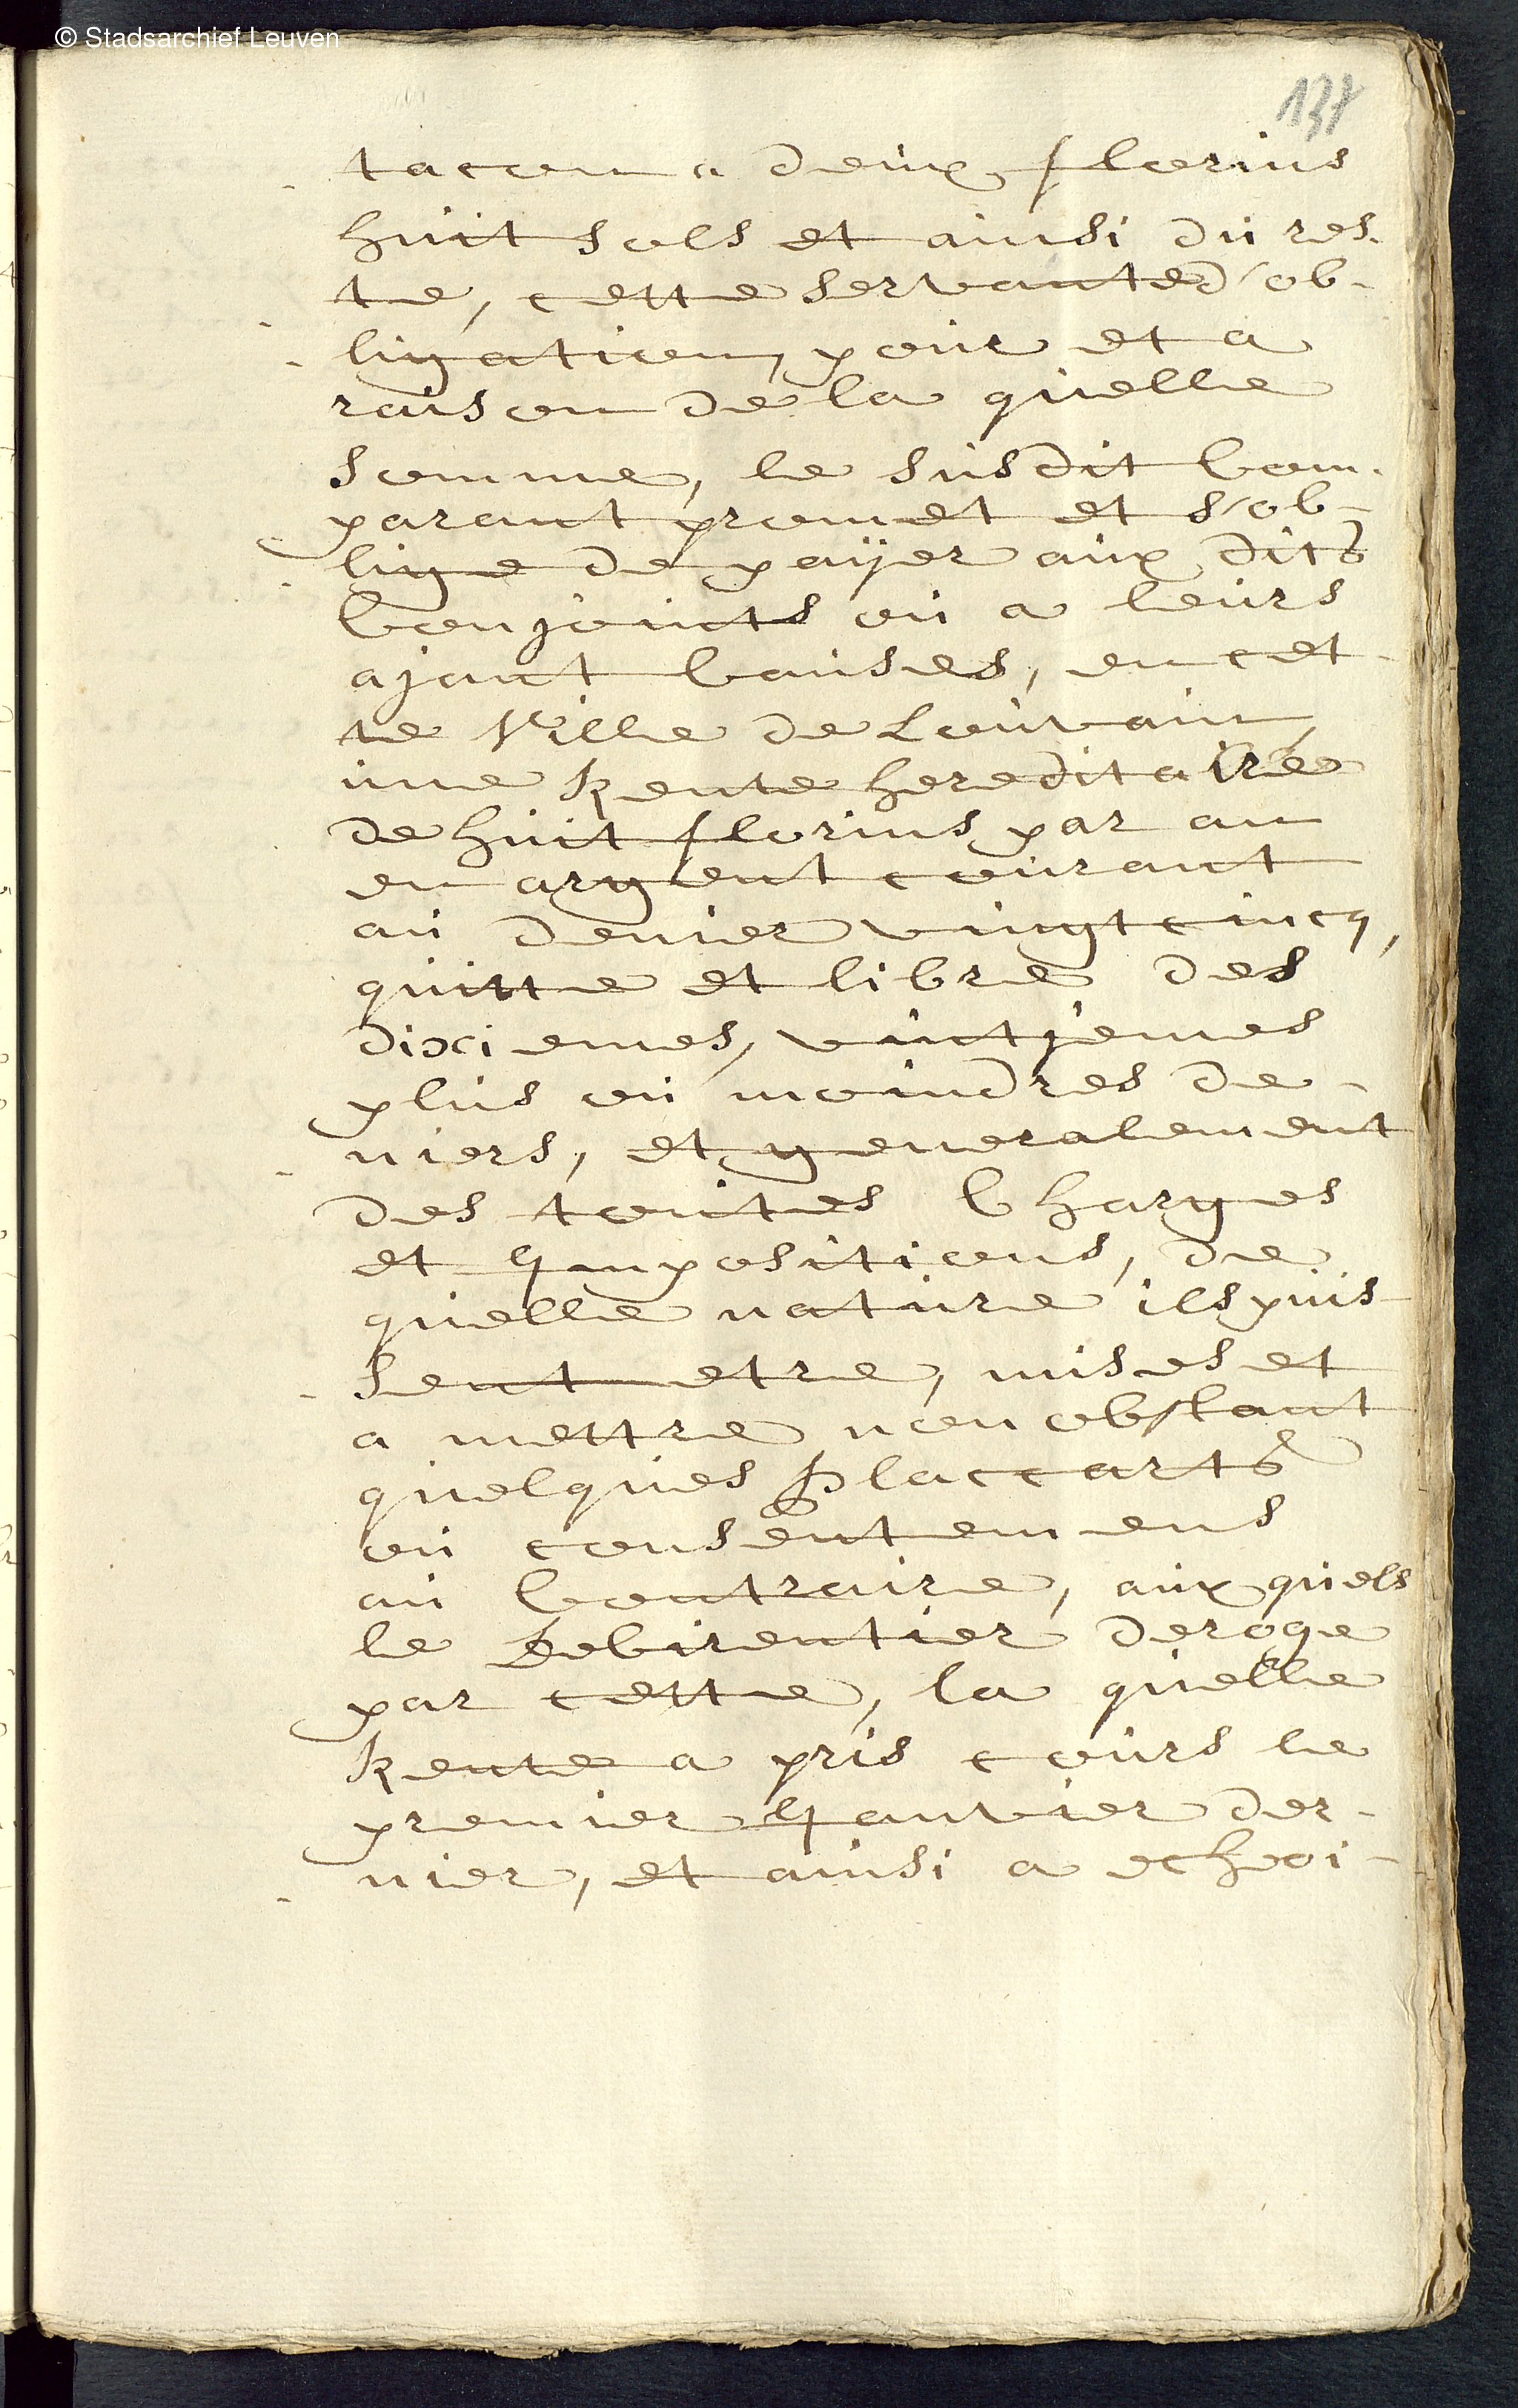 © Stadsarchief Leuven
137
tacon a deux florins
huit sols et ainsi du res-
te, cette servante d'ob-
ligation, pour et a
raison de la quelle
somme, le susdit Com-
parant promet et s'ob-
lige de paÿer aux dits
Conjoincts ou a leurs
ajant Causes, en cet-
te Ville de Louvain,
une Rente hereditaire
de huit florins par an
en argent courant
au denier vingt cincq,
quitte et libre des
dixiemes, vinctjemes
plus ou moindres de-
niers, et generalement
des toutes Charges
et Impositions, de
quelle nature ils puis-
sent etre, mises et
a mettre non obstant
quelques Placcarts
ou consentemens
au Contraire, aux quels
le Debirentier deroge
par cette, la quelle
Rente a pris cours le
premier Janvier der-
nier, et ainsi a echoi-